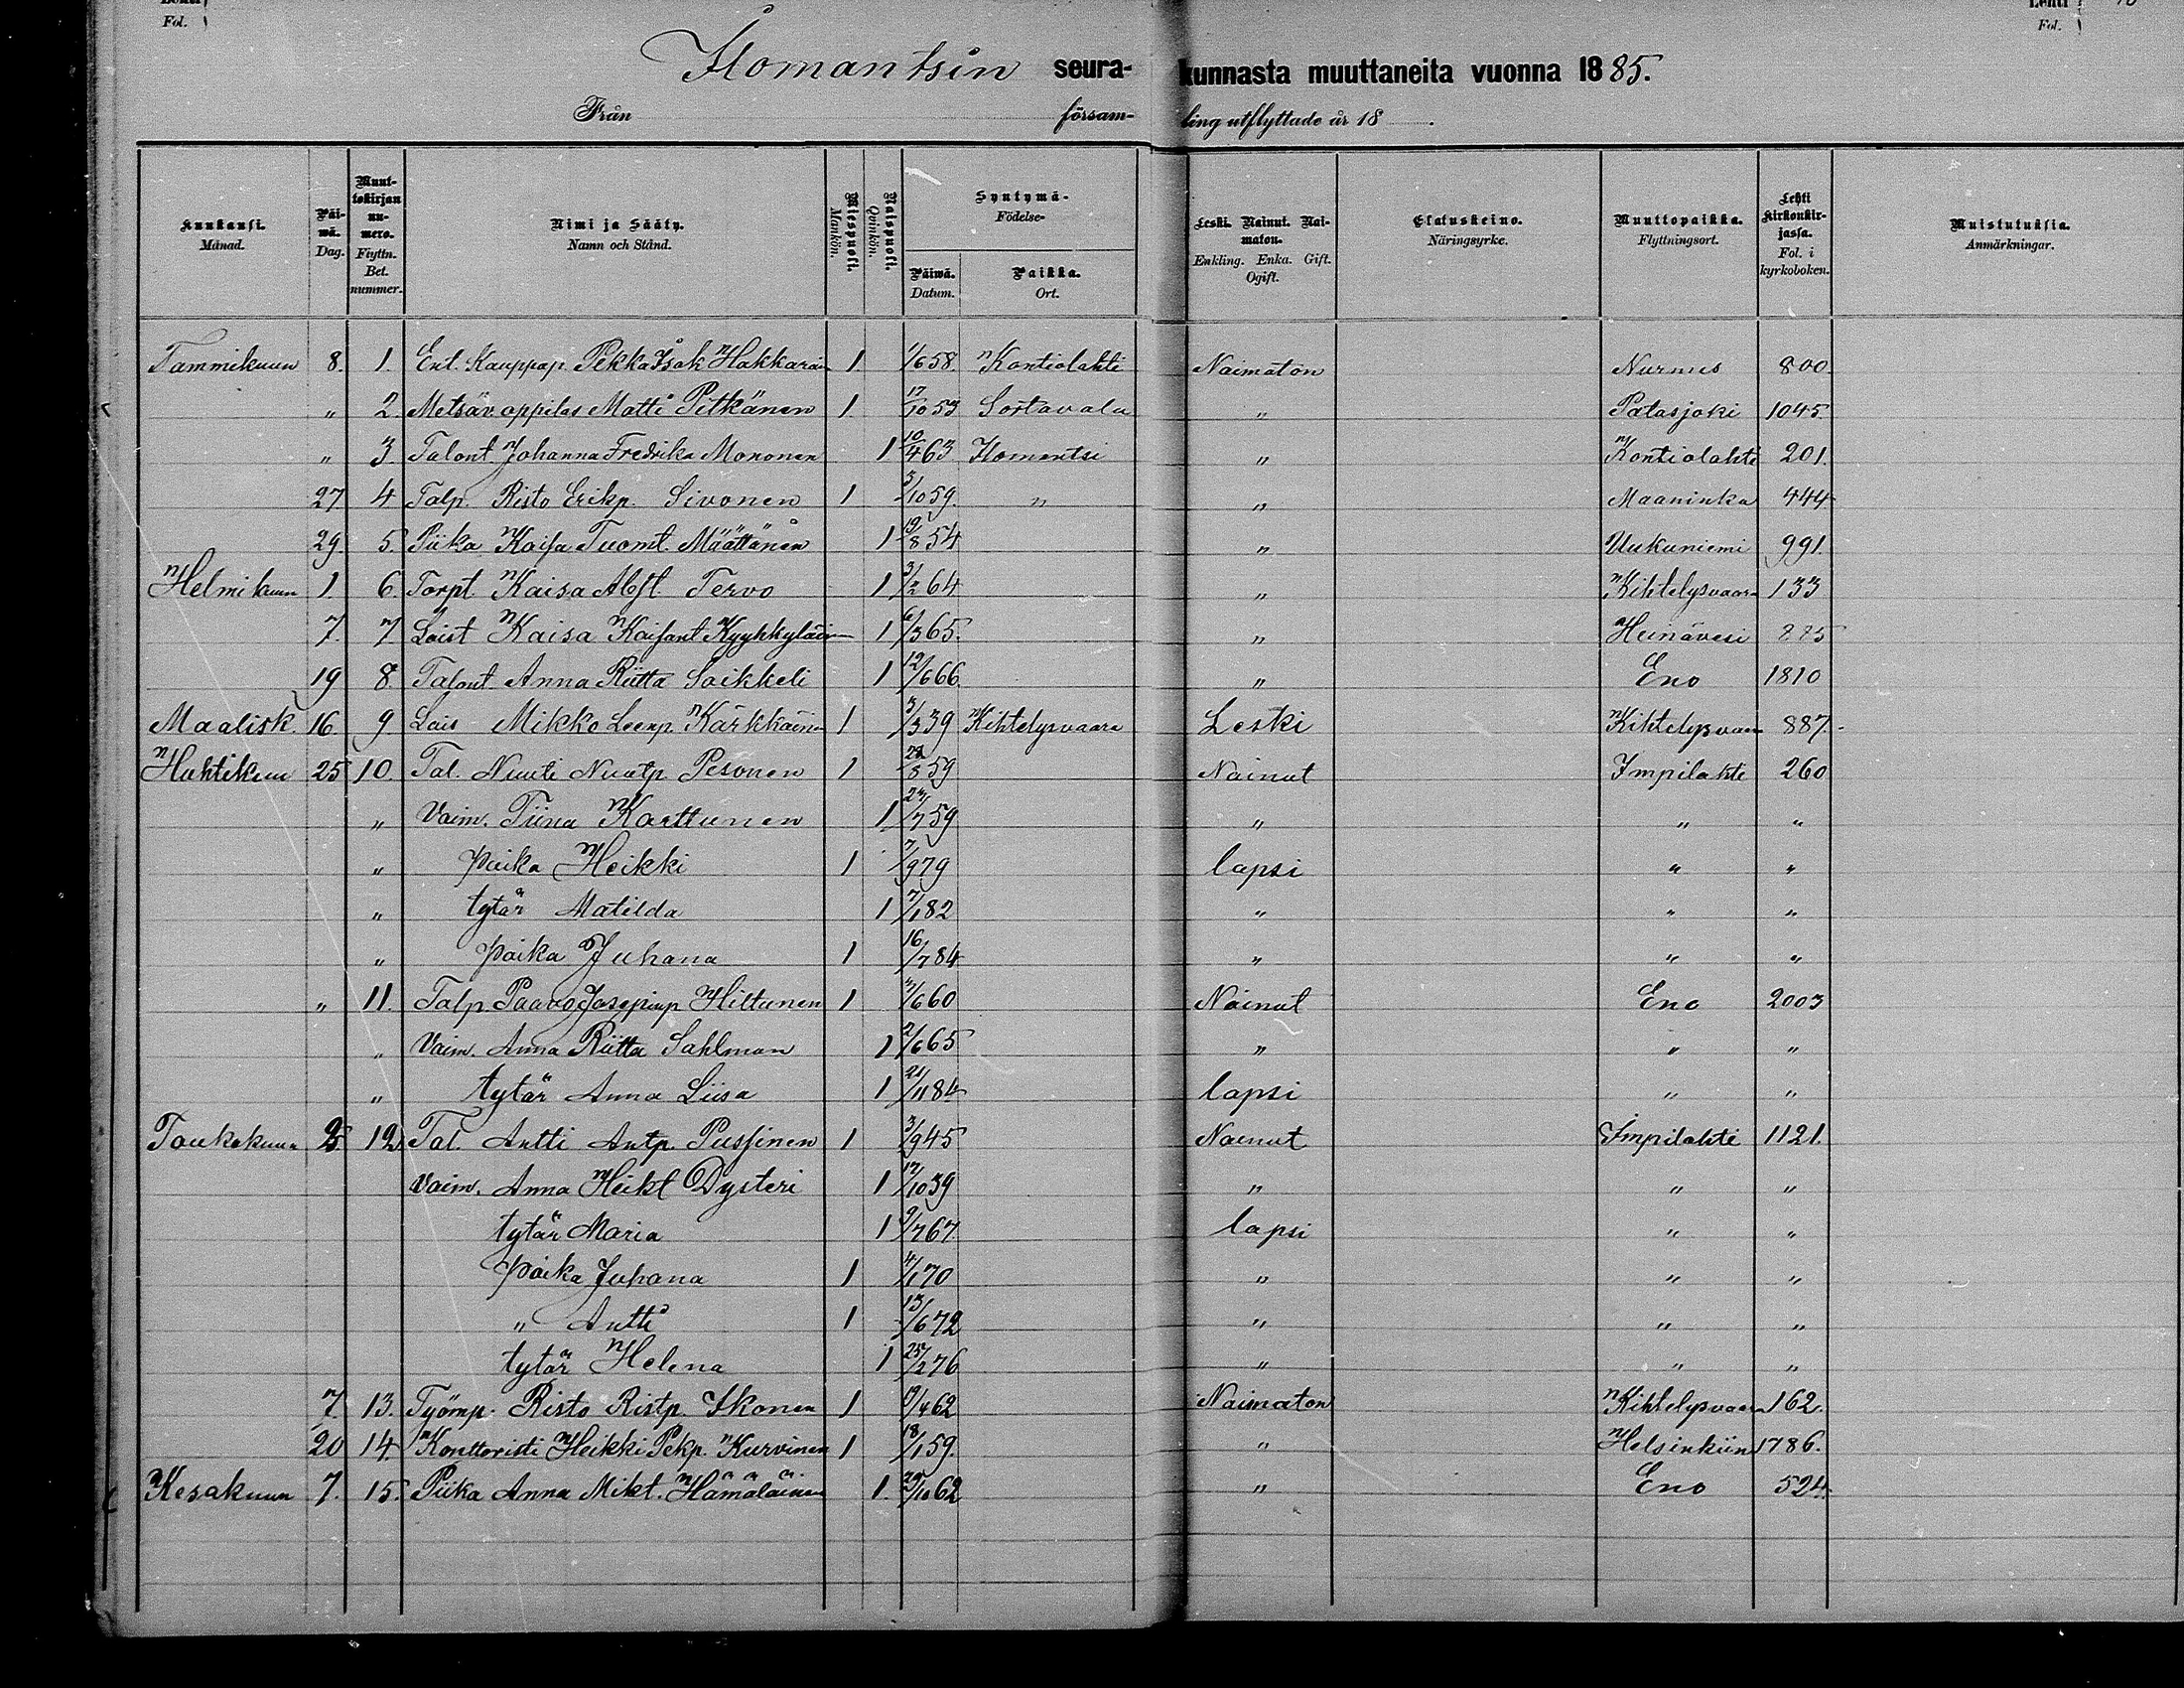 Fol.
Lehti
Fol.
Ilomantsin seura- kunnasta muuttaneita vuonna 1885.
Från försam- ling utflyttade år 18
Kuukausi. Månad. Päi-wä. Dag. Muut-tokirjan nu-mero. Flyttn. Bet. nummer. Nimi ja Sääty. Namn och Stånd. Miespuoli. Mankön. Naispuoli. Qvinkön. Syntymä- Födelse- Päiwä. Datum. Paikka. Ort. Leski. Nainut. Nai-maton. Enkling. Enka. Gift. Ogift. Elatuskeino. Näringsyrke. Muuttopaikka. Flyttningsort. Lehti kirkonkir-jassa. Fol. i kyrkoboken. Muistutuksia. Anmärkningar.
Tammikuun 8. 1. Ent. Kauppap. Pekka Isak Hakkarain 1 1/6 58. Kontiolahti Naimaton Nurmes 800
" 2. Metsävoppilas Matti Pitkänen 1 17/10 53 Sortavala " Patasjoki 1045.
" 3. Talont Johanna Fredrika Mononen 1 10/4 63 Ilomantsi " Kontiolahti 201.
27 4 Talp. Risto Erikp. Sivonen 1 3/10 59. " " Maaninka 444
29. 5. Piika Kaisa Tuomt. Määttänen 1 19/8 54 " Uukuniemi 991.
Helmikuun 1 6. Torpt. Kaisa Abst. Tervo 1 3/2 64 " Kihtelysvaara 133
7. 7 Loist Kaisa Kaisant Kyyhkyläin 1 6/3 65. " Heinävesi 885
19 8. Talont. Anna Riitta Saikkeli 1 12/6 66. " Eno 1810
Maalisk. 16. 9 Lois Mikko Leenp. Kärkkäinen 1 3/3 39 Kihtelysvaara Leski Kihtelysvaar 887.
Huhtikuu 25 10. Tal. Nuuti Nuutp. Pesonen 1 /8 59 Nainut Impilahti 260
" Vaim. Tiina Karttunen 1 23/7 59 " " "
" Poika Heikki 1 7/9 79 lapsi " "
" tytär Matilda 1 7/1 82 " " "
" Poika Juhana 1 16/7 84 " " "
" 11. Talp. Paavo Josepinp Hiltunen 1 /6 60 Nainut Eno 2003
" Vaim. Anna Riitta Sahlman 1 2/6 65 " " "
" tytär Anna Liisa 1 21/11 84 lapsi " "
Toukokuun 2. 12. Tal. Antti Antp. Pussinen 1 3/9 45 Nainut Impilahti 1121.
Vaim. Anna Heikt Dysteri 1 17/10 39 " " "
tytär Maria 1 9/7 67. lapsi " "
Poika Juhana 1 4/1 70 " " "
" Antti 1 13/6 72 " " "
tytär Helena 1 25/2 76 " " "
7. 13. Työmp. Risto Ristp. Ikonen 1 /4 62 Naimaton Kihtelysvaara 162.
20 14. Konttoristi Heikki Pekp. Kurvinen 1 18/1 59. " Helsinkiin 1786.
Kesäkuun 7. 15. Piika Anna Mikt. Hämäläinen 1. /10 62 " Eno 524.